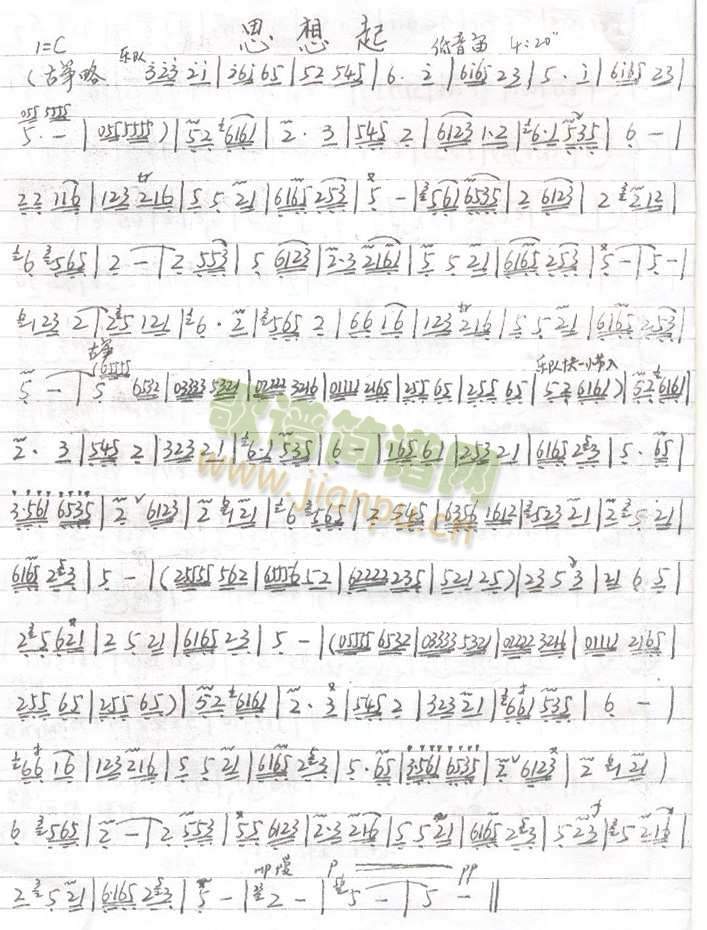 思想起 低音笛 4:20"
1=C
(古筝略 乐队 3̇2̇3̇ 2̇i̇ | 2̇6i̇ 65 | 52 545 | 6· 2̇ | 6i̇65 23 | 5· i̇ | 6i̇65 23 |
055 5555
5· - | 055 5555 ) | 52 6161 | 2· 3 | 545 2 | 6123 1·2 | 6·1 535 | 6 - |
22 116 | 123 216 | 5 5 21 | 6165 253 | 5 - | 561 6535 | 2 6123 | 2 212 |
6 565 | 2 - | 2 553 | 5 6123 | 2·3 2161 | 5 5 21 | 6165 253 | 5 - | 5 - |
123 2 | 25 121 | 6· 2 | 565 2 | 66 16 | 123 216 | 5 5 21 | 6165 253 |
古筝 乐队快一小节入
5 - | 5 6532 | 03333 5321 | 02222 3216 | 01111 2165 | 255 65 | 255 65 | 52 6161 ) | 52 6161 |
2· 3 | 545 2 | 323 21 | 6·1 535 | 6 - | 165 61 | 253 21 | 6165 23 | 5· 65 |
歌谱简谱网
www.jianpu.cn
3·561 6535 | 2 6123 | 2 21 | 6 565 | 2 545 | 6356 1612 | 523 21 | 2 5 21 |
6165 23 | 5 - | (25555 562 | 65556 52 | 62222 235 | 521 25 ) | 23 5 3 | 21 6 5 |
2 5621 | 2 5 21 | 6165 23 | 5 - | (05555 6532 | 03333 5321 | 02222 3216 | 01111 2165 |
255 65 | 255 65 ) | 52 6161 | 2· 3 | 545 2 | 323 21 | 661 535 | 6 - |
66 16 | 123 216 | 5 5 21 | 6165 23 | 5· 65 | 3561 6535 | 2 6123 | 2 21 )
6 565 | 2 - | 2 553 | 55 6123 | 2·3 216 | 5 5 21 | 6165 23 | 5 23 | 5 216 |
mp慢 p pp
2 5 21 | 6·165 23 | 5 - | 2 - | 5 - | 5 - ||